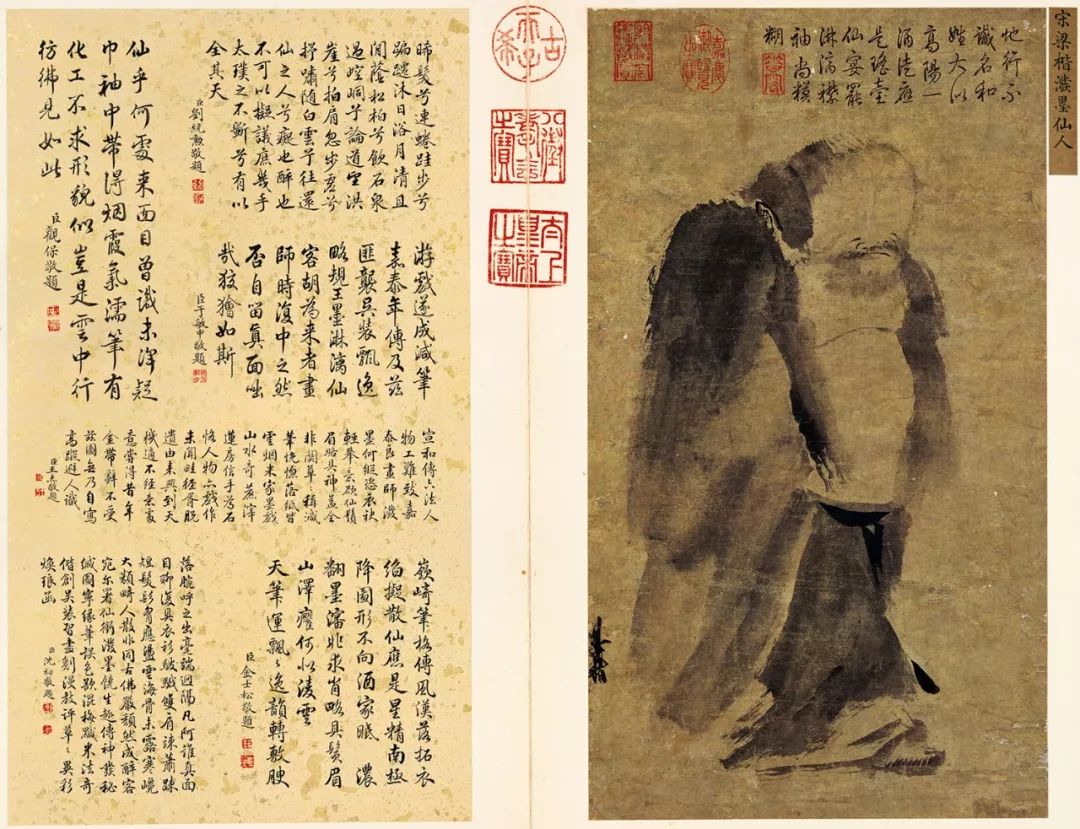 宋梁楷潑墨仙人
地行不
識名和
姓大以
高陽一
酒徒應
是瑤臺
仙宴罷
淋漓襟
袖尚模
糊
嘉慶御覽之寶
古希天子
八徵耄念之寶
太上皇帝之寶
晞髮兮連蜷跬步兮
蹁躚沐日浴月清且
閒蔭松柏兮飲石泉
過崆峒乎論道望洪
崖兮拍肩忽步虛兮
抒嘯隨白雲乎往還
仙之人兮癡也醉也
不可以擬議庶幾乎
太璞之不斵兮有以
全其天
臣劉統勳敬題
仙乎何處来面目曾識未渾疑
巾袖中帶得烟霞氣濡筆有
化工不求形貌似豈是雲中行
彷彿見如此
臣觀保敬題
游戲遂成減筆
嘉泰年傳及茲
匪襲吳裝飄逸
略規王墨淋漓仙
客胡為来者畫
師時復中之然
否自留真面咄
哉狡獪如斯
臣于敏中敬題
宣和傳六法人
物工難致嘉
泰良畫師潑
墨何縱恣袂
軽舉欲仙鬚
眉略具神盖全
非関草稱減
筆恍惚落紙皆
雲烟米家墨戲
山水奇蔗滓
蓮房信手為石
恪人物亦戲作
未聞畦徑胥脫
遺由来興到天
機適不經意處
意當得昔年
金帶辭不受
茲圖無乃自寫
高蹤避人識
臣王杰敬題
嶔崎筆格傳風漢落拓衣
袍擬散仙應是星精南極
降圖形不向酒家眠 濃
翻墨瀋非求肖略具鬚眉
山澤癯何以凌雲
天筆運飄飄逸韻轉敷腴
臣金士松敬題
落腕呼之出毫端迥陽凡阿誰真面
目聊復具衣衫雙肩竦蕭疎
短髮鬖胥應盪雲海骨未露寒巉
大類畸人散非同古佛嚴頹然成醉客
宛尔署仙銜潑墨饒生趣傳神發秘
緘圖寧緣筆誤色欵混梅黬米法奇
偕創吳裝習盡劖漫教評草草異彩
煥琅函
臣沈初敬題